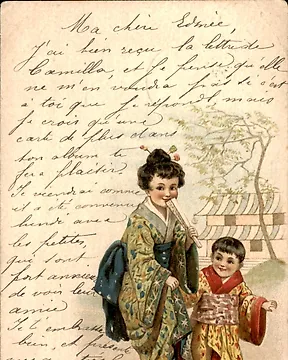 Ma chère Edmée
J'ai bien reçu la lettre de
Camilla, et je pense que elle
ne m'en voudra pas si c'est
à toi que je réponds, mais
je crois qu'une
carte de plus dans
ton album te
fera plaisir.
Je viendrai comme
il a été convenu
lundi avec
les petites,
qui sont
fort anxieuses
de voir leur
amie
Je t'embrasse
bien, et